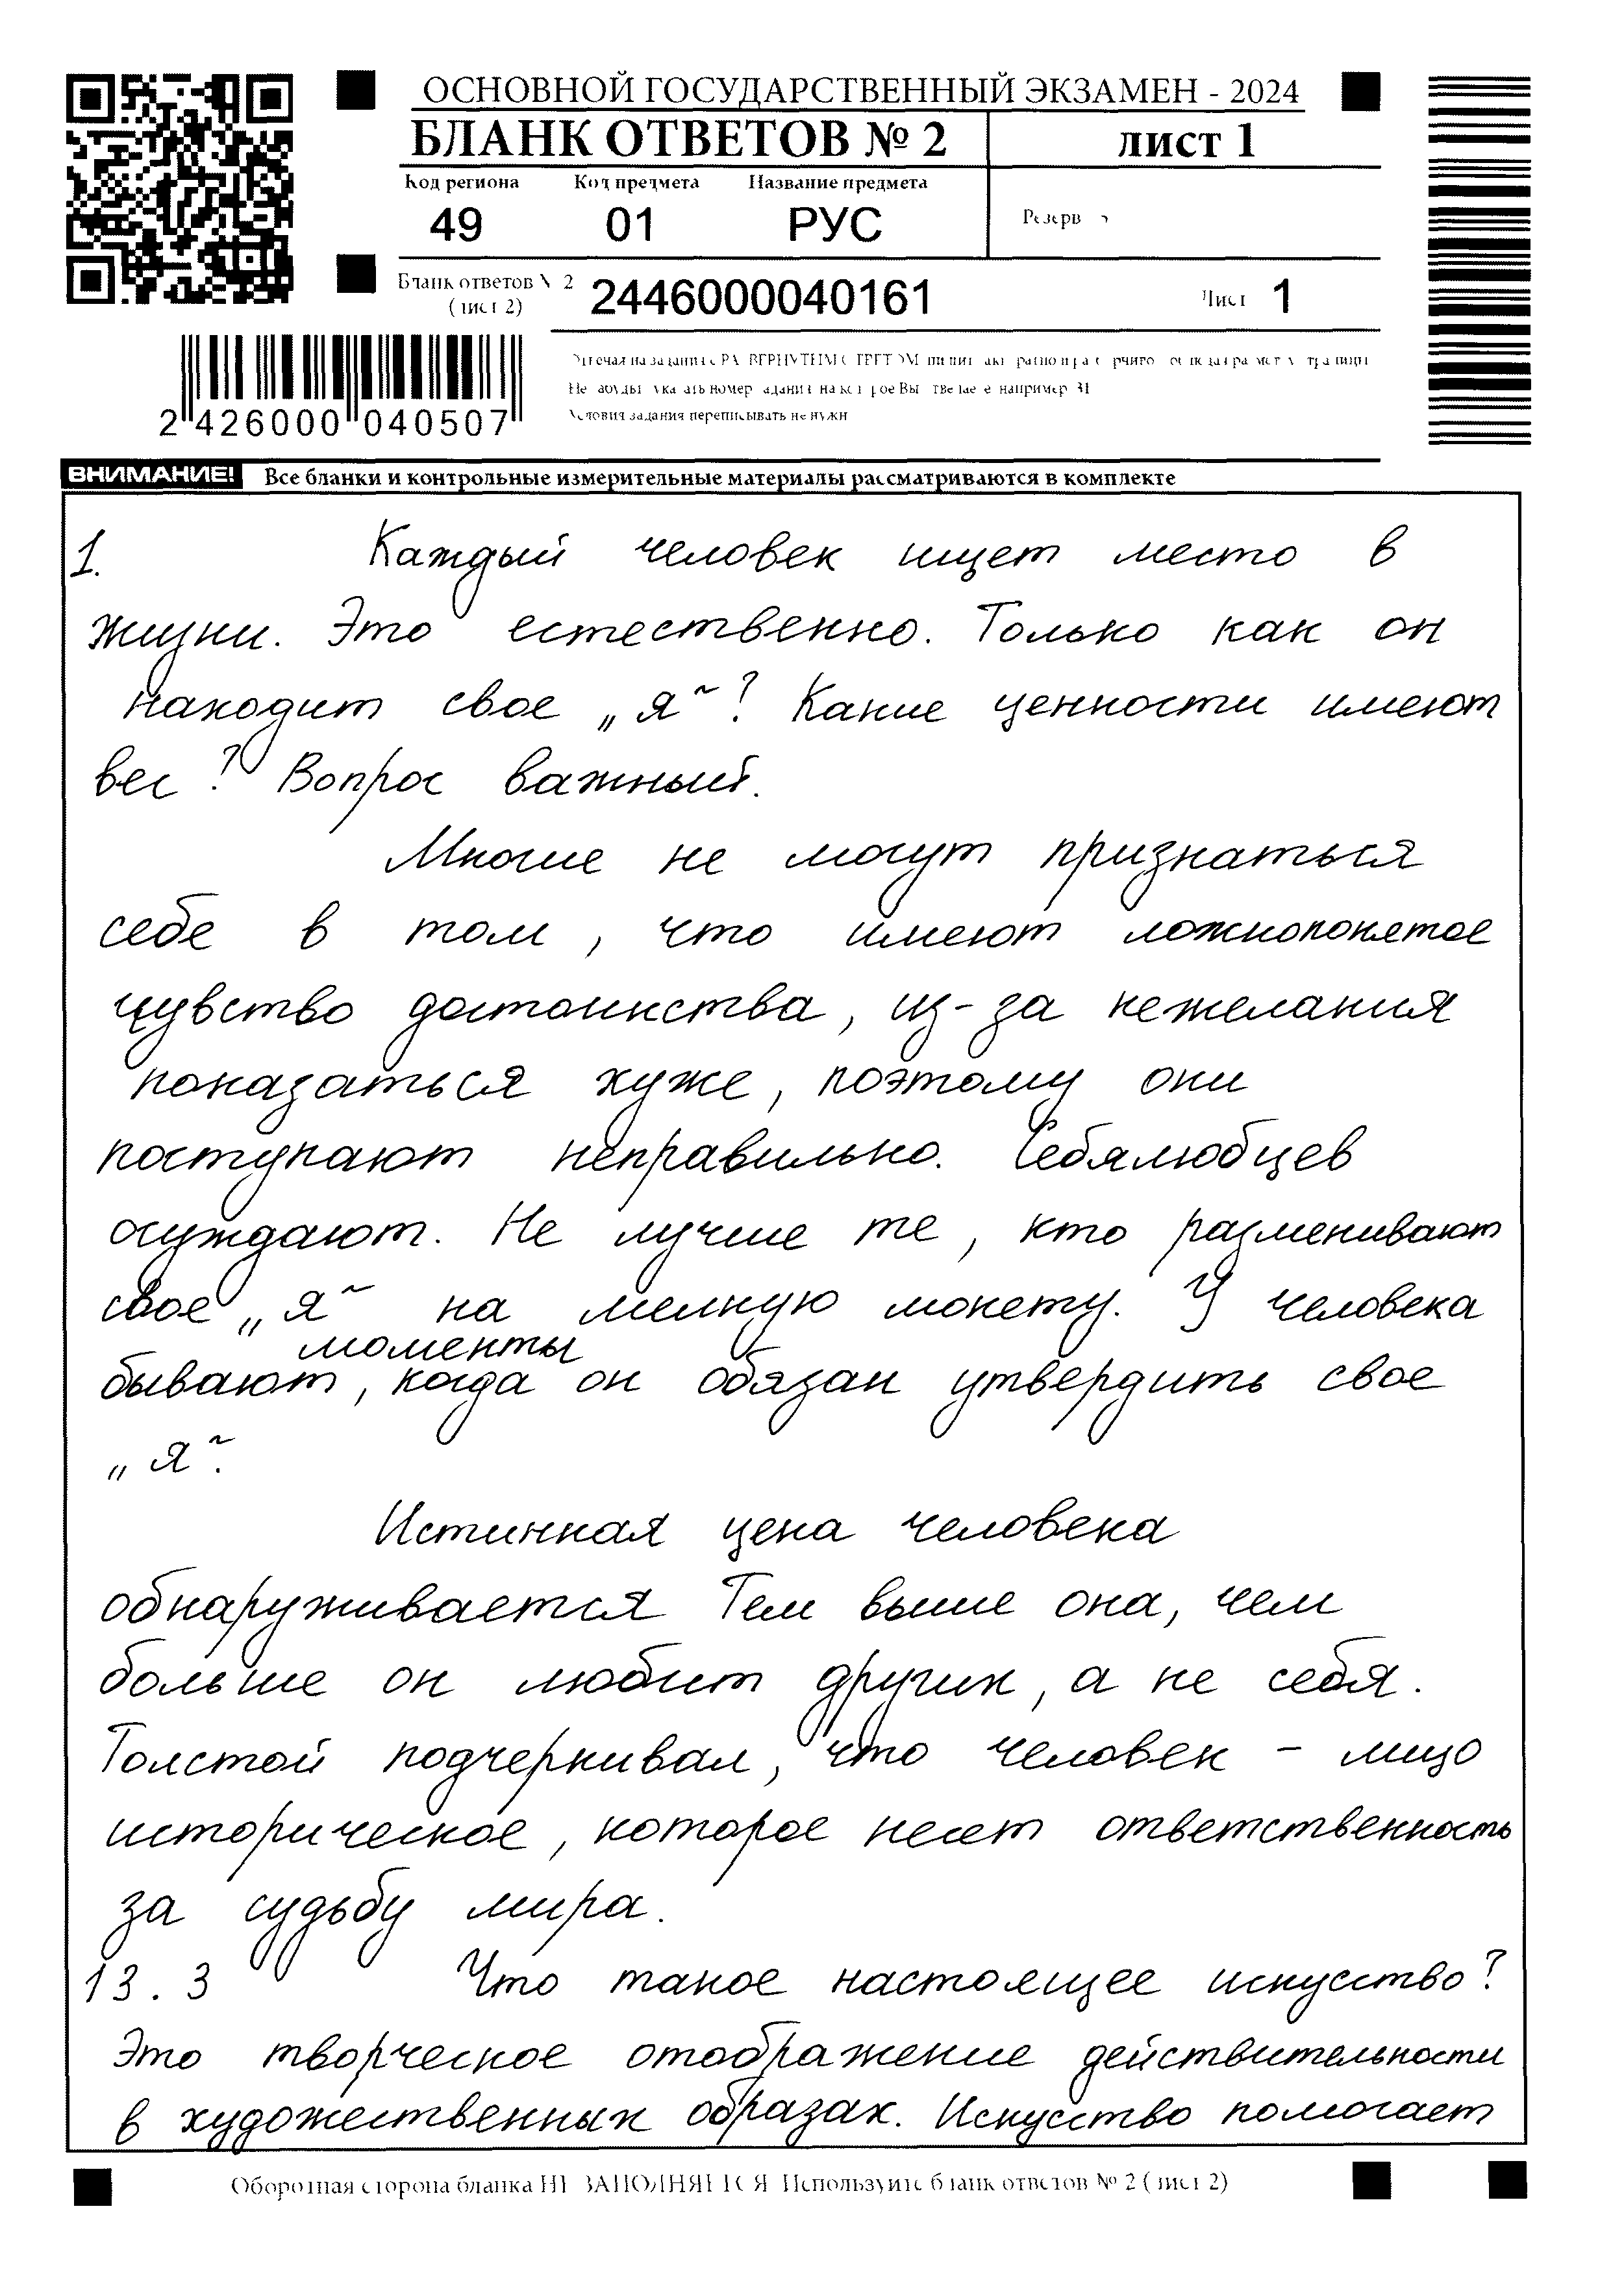 ОСНОВНОЙ ГОСУДАРСТВЕННЫЙ ЭКЗАМЕН - 2024
БЛАНК ОТВЕТОВ № 2
ЛИСТ 1
Код региона Код предмета Название предмета
49 01 РУС
Резерв
Бланк ответов № 2
(лист 2)
2446000040161
Лист 1
2 426000 040507
Условия задания переписывать не нужн
ВНИМАНИЕ! Все бланки и контрольные измерительные материалы рассматриваются в комплекте
1. Каждый человек ищет место в
жизни. Это естественно. Только как он
находит свое „я“? Какие ценности имеют
вес? Вопрос важный.
Многие не могут признаться
себе в том, что имеют ложнопонятое
чувство достоинства, из-за нежелания
показаться хуже, поэтому они
поступают неправильно. Себялюбцев
осуждают. Не лучше те, кто разменивают
свое „я“ на мелкую монету. У человека
моменты
бывают, когда он обязан утвердить свое
„я“.
Истинная цена человека
обнаруживается Тем выше она, чем
больше он любит других, а не себя.
Толстой подчеркивал, что человек – лицо
историческое, которое несет ответственность
за судьбу мира.
13.3 Что такое настоящее искусство?
Это творческое отображение действительности
в художественных образах. Искусство помогает
Оборотная сторона бланка НЕ ЗАПОЛНЯЕТСЯ. Используйте бланк ответов № 2 (лист 2)